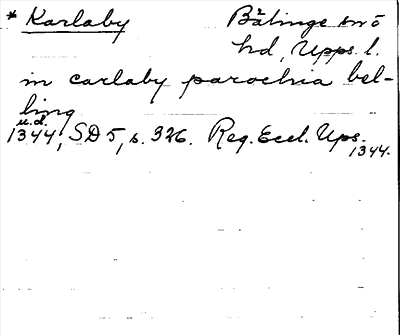 * Karlaby Bälinge sn o
hd, Upps. l.
in carlaby parochia bel-
ling
u.d.
1344, SD 5, s. 326. Reg. Eccl. Ups.
1344.